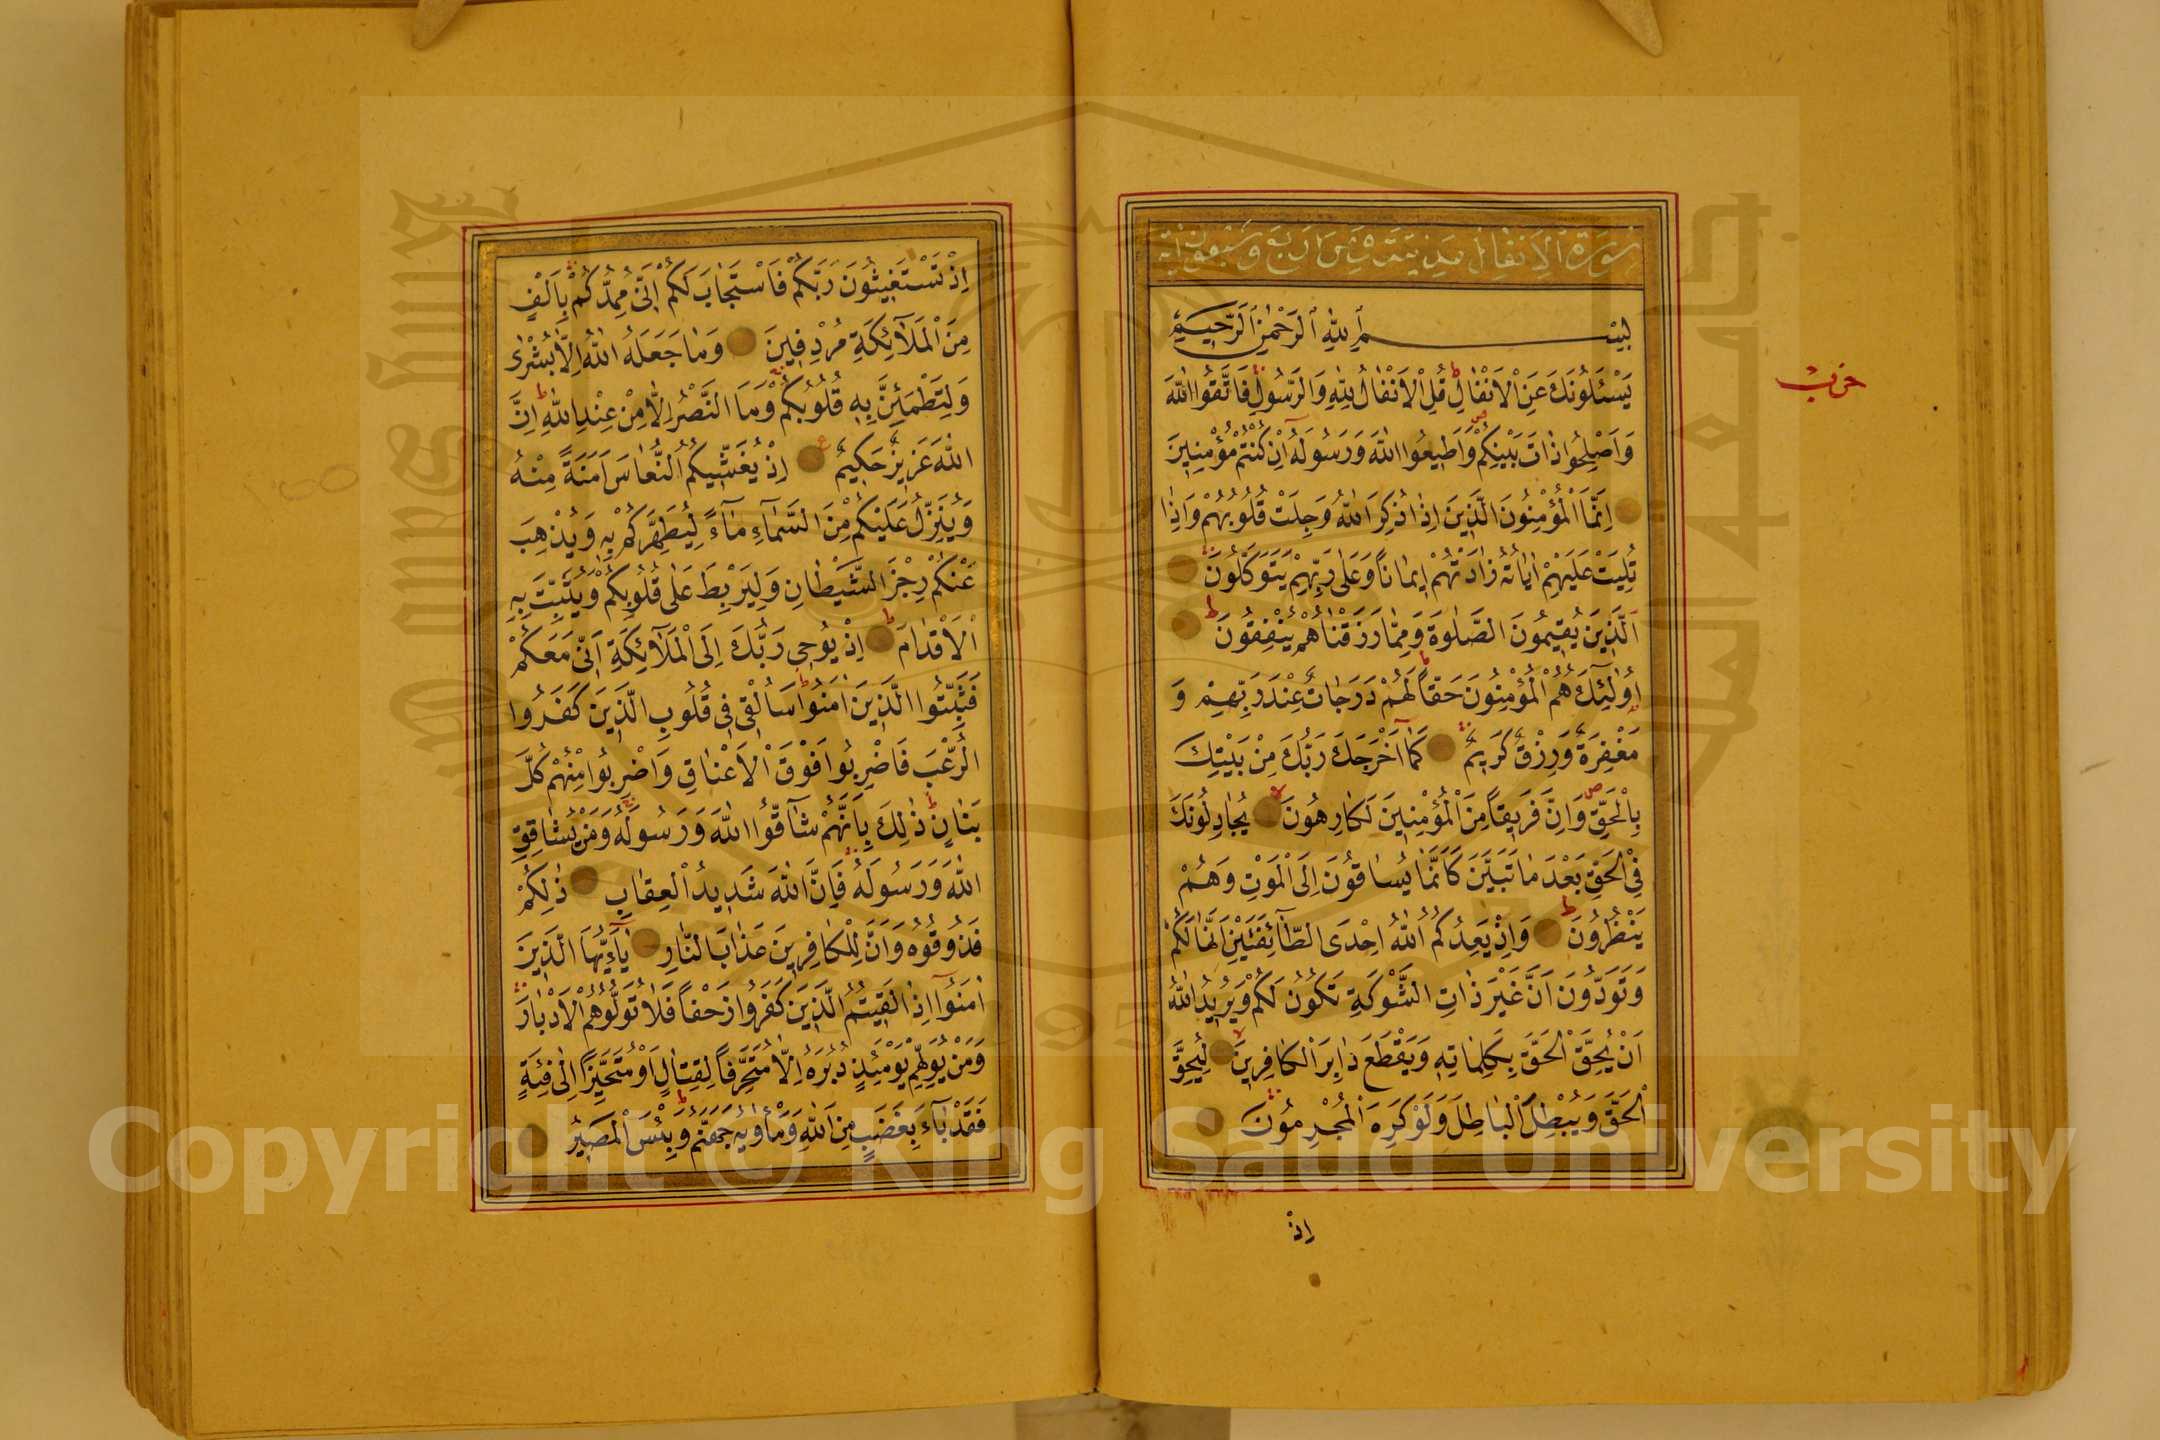 سورة الانفال مدنية وهي اربع وسبعون اية
بِسْمِ اللهِ الرَّحْمٰنِ الرَّحِيمِ
يَسْـَٔلُونَكَ عَنِ الْاَنْفَالِ قُلِ الْاَنْفَالُ لِلّٰهِ وَالرَّسُولِ فَاتَّقُوا اللهَ
وَاَصْلِحُوا ذَاتَ بَيْنِكُمْ وَاَطِيعُوا اللهَ وَرَسُولَهُ اِنْ كُنْتُمْ مُؤْمِنِينَ
اِنَّمَا الْمُؤْمِنُونَ الَّذِينَ اِذَا ذُكِرَ اللهُ وَجِلَتْ قُلُوبُهُمْ وَاِذَا
تُلِيَتْ عَلَيْهِمْ اٰيَاتُهُ زَادَتْهُمْ اِيمَانًا وَعَلٰى رَبِّهِمْ يَتَوَكَّلُونَ
اَلَّذِينَ يُقِيمُونَ الصَّلٰوةَ وَمِمَّا رَزَقْنَاهُمْ يُنْفِقُونَ
اُولٰئِكَ هُمُ الْمُؤْمِنُونَ حَقًّا لَهُمْ دَرَجَاتٌ عِنْدَ رَبِّهِمْ وَ
مَغْفِرَةٌ وَرِزْقٌ كَرِيمٌ كَمَا اَخْرَجَكَ رَبُّكَ مِنْ بَيْتِكَ
بِالْحَقِّ وَاِنَّ فَرِيقًا مِنَ الْمُؤْمِنِينَ لَكَارِهُونَ يُجَادِلُونَكَ
فِي الْحَقِّ بَعْدَ مَا تَبَيَّنَ كَاَنَّمَا يُسَاقُونَ اِلَى الْمَوْتِ وَهُمْ
يَنْظُرُونَ وَاِذْ يَعِدُكُمُ اللهُ اِحْدَى الطَّائِفَتَيْنِ اَنَّهَا لَكُمْ
وَتَوَدُّونَ اَنَّ غَيْرَ ذَاتِ الشَّوْكَةِ تَكُونُ لَكُمْ وَيُرِيدُ اللهُ
اَنْ يُحِقَّ الْحَقَّ بِكَلِمَاتِهِ وَيَقْطَعَ دَابِرَ الْكَافِرِينَ لِيُحِقَّ
الْحَقَّ وَيُبْطِلَ الْبَاطِلَ وَلَوْ كَرِهَ الْمُجْرِمُونَ
اِذْ
حزب
اِذْ تَسْتَغِيثُونَ رَبَّكُمْ فَاسْتَجَابَ لَكُمْ اَنِّي مُمِدُّكُمْ بِاَلْفٍ
مِنَ الْمَلٰٓئِكَةِ مُرْدِفِينَ وَمَا جَعَلَهُ اللهُ اِلَّا بُشْرٰى
وَلِتَطْمَئِنَّ بِهِ قُلُوبُكُمْ وَمَا النَّصْرُ اِلَّا مِنْ عِنْدِ اللهِ اِنَّ
اللهَ عَزِيزٌ حَكِيمٌ اِذْ يُغَشِّيكُمُ النُّعَاسَ اَمَنَةً مِنْهُ
وَيُنَزِّلُ عَلَيْكُمْ مِنَ السَّمَاءِ مَاءً لِيُطَهِّرَكُمْ بِهِ وَيُذْهِبَ
عَنْكُمْ رِجْزَ الشَّيْطَانِ وَلِيَرْبِطَ عَلٰى قُلُوبِكُمْ وَيُثَبِّتَ بِهِ
الْاَقْدَامَ اِذْ يُوحِي رَبُّكَ اِلَى الْمَلٰٓئِكَةِ اَنِّي مَعَكُمْ
فَثَبِّتُوا الَّذِينَ اٰمَنُوا سَاُلْقِي فِي قُلُوبِ الَّذِينَ كَفَرُوا
الرُّعْبَ فَاضْرِبُوا فَوْقَ الْاَعْنَاقِ وَاضْرِبُوا مِنْهُمْ كُلَّ
بَنَانٍ ذٰلِكَ بِاَنَّهُمْ شَاقُّوا اللهَ وَرَسُولَهُ وَمَنْ يُشَاقِقِ
اللهَ وَرَسُولَهُ فَاِنَّ اللهَ شَدِيدُ الْعِقَابِ ذٰلِكُمْ
فَذُوقُوهُ وَاَنَّ لِلْكَافِرِينَ عَذَابَ النَّارِ يَا اَيُّهَا الَّذِينَ
اٰمَنُوا اِذَا لَقِيتُمُ الَّذِينَ كَفَرُوا زَحْفًا فَلَا تُوَلُّوهُمُ الْاَدْبَارَ
وَمَنْ يُوَلِّهِمْ يَوْمَئِذٍ دُبُرَهُ اِلَّا مُتَحَرِّفًا لِقِتَالٍ اَوْ مُتَحَيِّزًا اِلٰى فِئَةٍ
فَقَدْ بَاءَ بِغَضَبٍ مِنَ اللهِ وَمَأْوٰيهُ جَهَنَّمُ وَبِئْسَ الْمَصِيرُ
Copyright © King Saud University